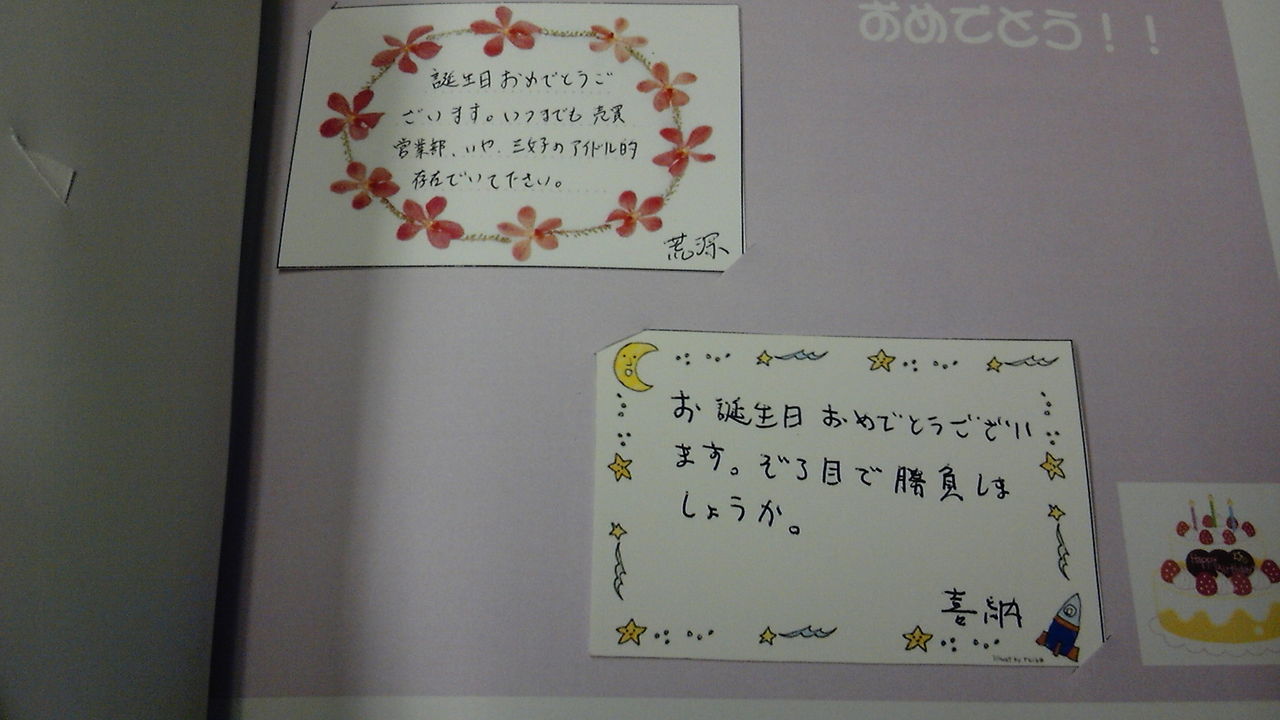 おめでとう！！
誕生日おめでとうご
ざいます。いつまでも売買
営業部、いや、三好のアイドル的
存在でいて下さい。
荒深
お誕生日おめでとうござい
ます。ぞろ目で勝負しま
しょうか。
喜納
Happy Birthday